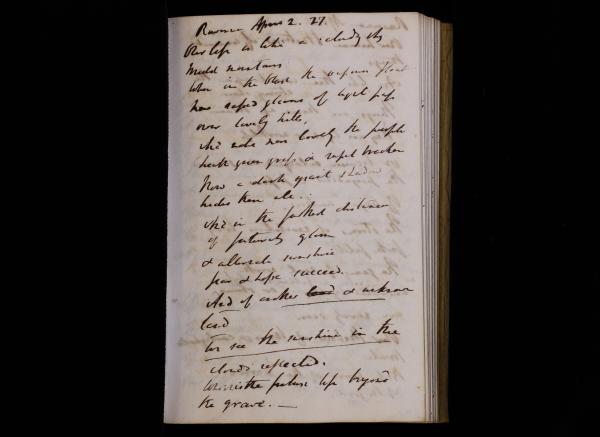 Ravenna April 2. 27.
Our life is like a cloudy sky
Midst mountains
When in the blast the vapours float
Now rapid gleams of light pass
over lovely hills,
And make more lovely the purple
heath green grass &
Now a dark giant shadow
hides them all.
And in the distance
of futurity gleam
& alternate sunshine
fear & hope succeed.
And of another land & unknown
land
We see the sunshine in the
clouds reflected.
Which is the future life beyond
the grave. —